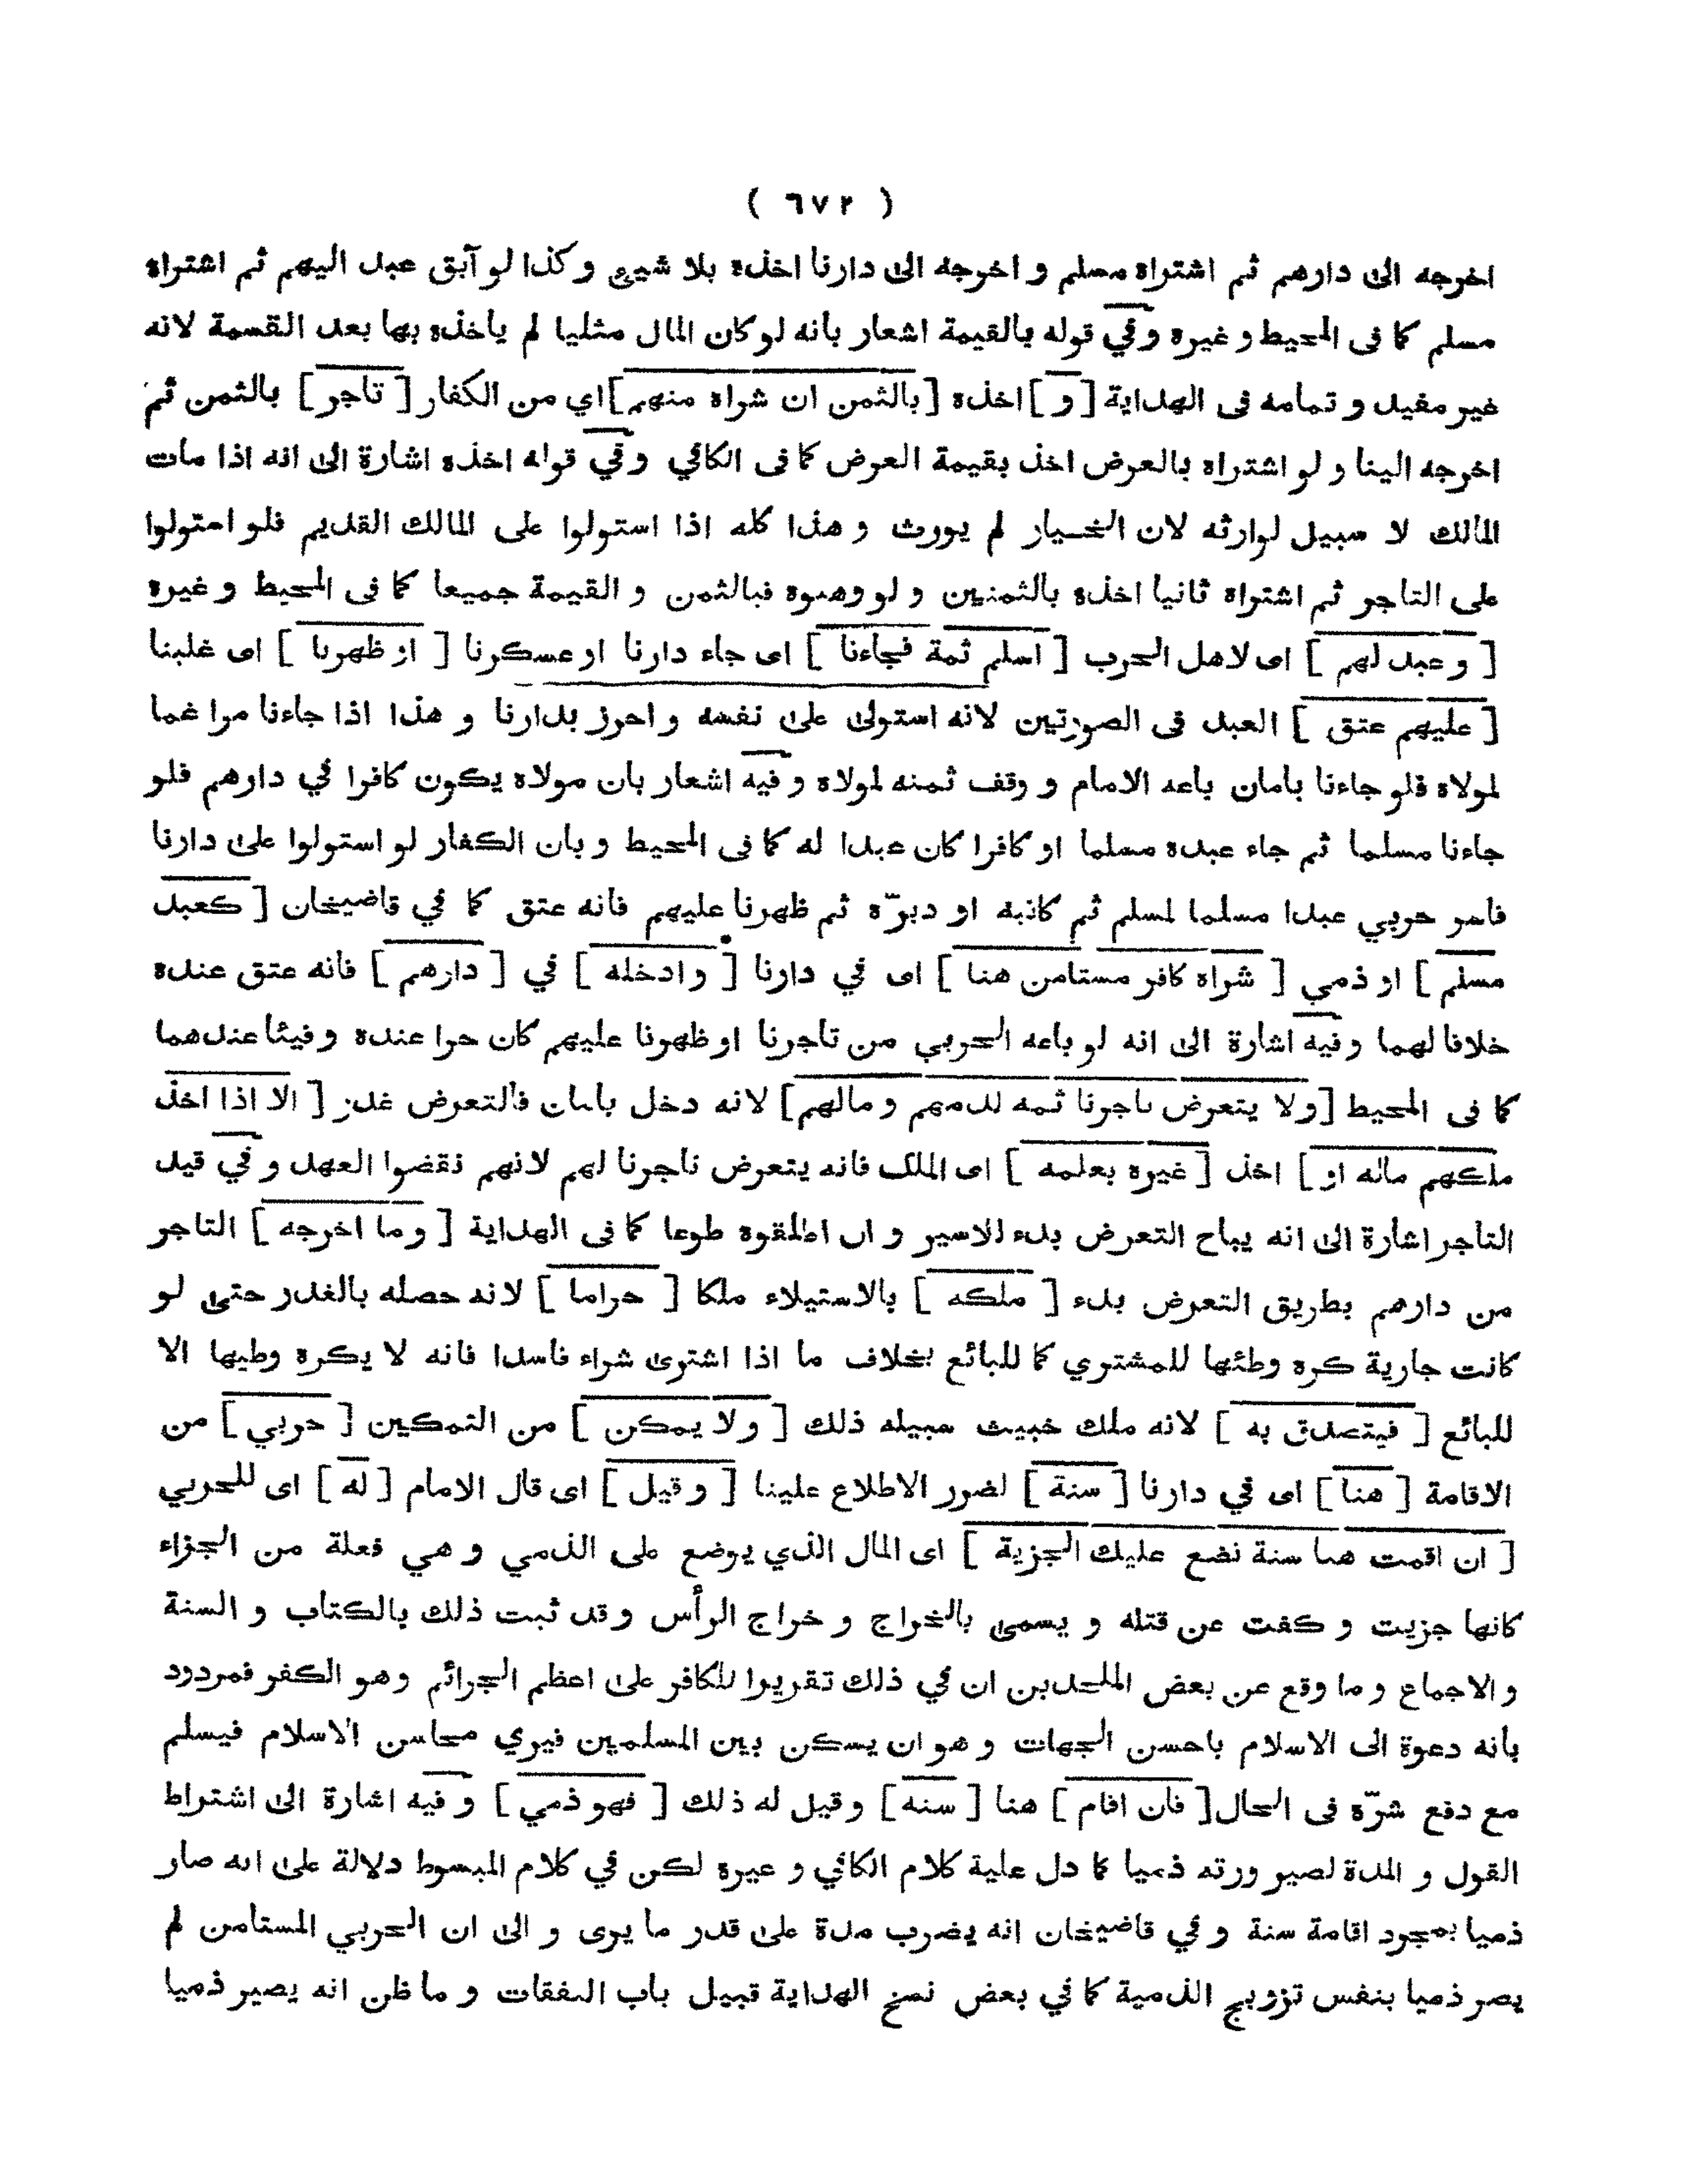 ( ٦٧٢ )
اخرجه الى دارهم ثم اشتراه مسلم و اخرجه الى دارنا اخذه بلا شيئ و كذا لو آبق عبد اليهم ثم اشتراه
مسلم كما فى المحيط و غيره وفي قوله بالقيمة اشعار بانه لو كان المال مثليا لم ياخذه بها بعد القسمة لانه
غير مفيد و تمامه فى الهداية [ و ] اخذه [ بالثمن ان شراه منهم ] اي من الكفار [ تاجر ] بالثمن ثم
اخرجه الينا و لو اشتراه بالعرض اخذ بقيمة العرض كما فى الكافي وفي قوله اخذه اشارة الى انه اذا مات
المالك لا سبيل لوارثه لان الخيار لم يورث و هذا كله اذا استولوا على المالك القديم فلو استولوا
على التاجر ثم اشتراه ثانيا اخذه بالثمنين و لو وهبوه فبالثمن و القيمة جميعا كما فى المحيط و غيره
[ و عبد لهم ] اى لاهل الحرب [ اسلم ثمة فجاءنا ] اى جاء دارنا او عسكرنا [ او ظهرنا ] اى غلبنا
[ عليهم عتق ] العبد فى الصورتين لانه استولى على نفسه و احرز بدارنا و هذا اذا جاءنا مراغما
لمولاه فلو جاءنا بامان باعه الامام و وقف ثمنه لمولاه و فيه اشعار بان مولاه يكون كافرا في دارهم فلو
جاءنا مسلما ثم جاء عبده مسلما او كافرا كان عبدا له كما فى المحيط و بان الكفار لو استولوا على دارنا
فاسر حربي عبدا مسلما لمسلم ثم كاتبه او دبرّه ثم ظهرنا عليهم فانه عتق كما في قاضيخان [ كعبد
مسلم ] او ذمي [ شراه كافر مستامن هنا ] اى في دارنا [ و ادخله ] في [ دارهم ] فانه عتق عنده
خلافا لهما و فيه اشارة الى انه لو باعه الحربي من تاجرنا او ظهرنا عليهم كان حرا عنده و فيئا عندهما
كما فى المحيط [ ولا يتعرض تاجرنا ثمه لدمهم و مالهم ] لانه دخل بامان فالتعرض غدر [ الا اذا اخذ
ملكهم ماله او ] اخذ [ غيره بعلمه ] اى الملك فانه يتعرض تاجرنا لهم لانهم نقضوا العهد و في قيد
التاجر اشارة الى انه يباح التعرض بدء للاسير و ان اطلقوه طوعا كما فى الهداية [ وما اخرجه ] التاجر
من دارهم بطريق التعرض بدء [ ملكه ] بالاستيلاء ملكا [ حراما ] لانه حصله بالغدر حتى لو
كانت جارية كره وطئها للمشتري كما للبائع بخلاف ما اذا اشترى شراء فاسدا فانه لا يكره وطيها الا
للبائع [ فيتصدق به ] لانه ملك خبيث سبيله ذلك [ ولا يمكن ] من التمكين [ حربي ] من
الاقامة [ هنا ] اى في دارنا [ سنة ] لضرر الاطلاع علينا [ و قيل ] اى قال الامام [ له ] اى للحربي
[ ان اقمت هنا سنة نضع عليك الجزية ] اى المال الذي يوضع على الذمي و هي فعلة من الجزاء
كانها جزيت و كفت عن قتله و يسمى بالخراج و خراج الرأس و قد ثبت ذلك بالكتاب و السنة
و الاجماع و ما وقع عن بعض الملحدين ان في ذلك تقريرا للكافر على اعظم الجرائم وهو الكفر فمردود
بانه دعوة الى الاسلام باحسن الجهات و هو ان يسكن بين المسلمين فيري محاسن الاسلام فيسلم
مع دفع شرّه فى الحال [ فان اقام ] هنا [ سنه ] و قيل له ذلك [ فهو ذمي ] و فيه اشارة الى اشتراط
القول و المدة لصيرورته ذميا كما دل علية كلام الكافي و غيره لكن في كلام المبسوط دلالة على انه صار
ذميا بمجرد اقامة سنة و في قاضيخان انه يضرب مدة على قدر ما يرى و الى ان الحربي المستامن لم
يصر ذميا بنفس تزويج الذمية كما في بعض نسخ الهداية قبيل باب النفقات و ما ظن انه يصير ذميا